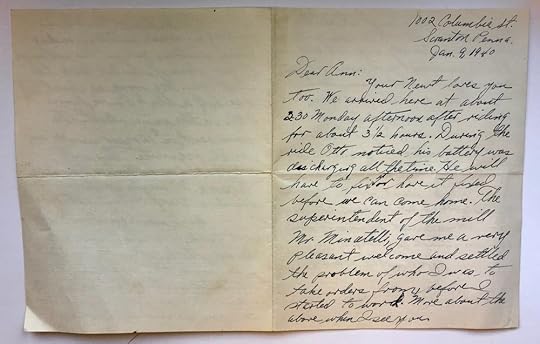 1002 Columbia St.
Scranton Penna.
Jan. 9, 1940
Dear Ann:
Your Newt loves you
too. We arrived here at about
2:30 Monday afternoon after riding
for about 3 1/2 hours. During the
ride Otto noticed his battery was
discharging all the time. He will
have to fix or have it fixed
before we can come home. The
superintendent of the mill
Mr. Minatelli, gave me a very
pleasant welcome and settled
the problem of who I was to
take orders from before I
started to work. More about the
above when I see you